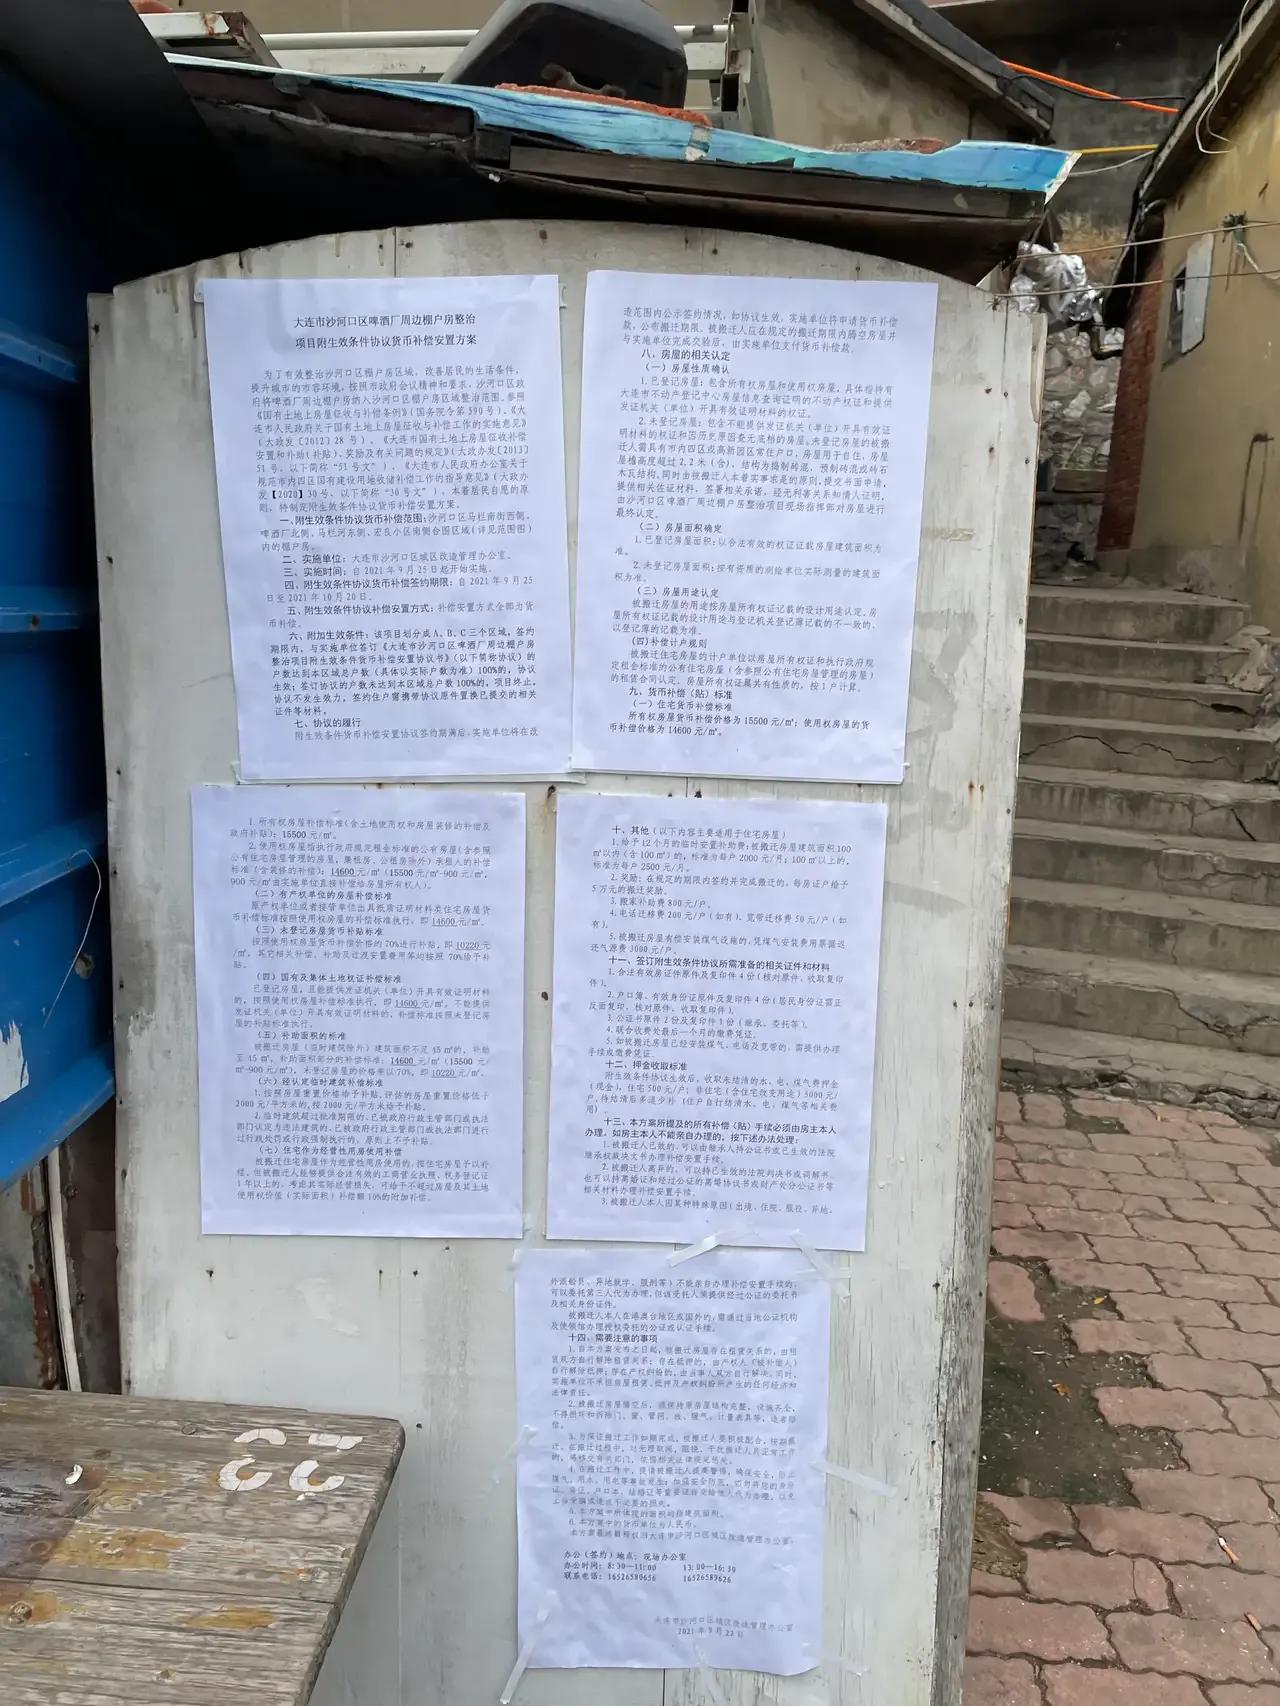 大连市沙河口区啤酒厂周边棚户房整治
项目附生效条件协议货币补偿安置方案
为了有效整治沙河口区棚户房区域，改善居民的生活条件，
提升城市的市容环境，按照市政府会议精神和要求，沙河口区政
府将啤酒厂周边棚户房纳入沙河口区棚户房区域整治范围。参照
《国有土地上房屋征收与补偿条例》（国务院令第590号）、《大
连市人民政府关于国有土地上房屋征收与补偿工作的实施意见》
（大政发〔2012〕28号）、《大连市国有土地上房屋征收补偿
安置和补助（补贴）、奖励及有关问题的规定》（大政办发〔2013〕
51号，以下简称“51号文”）、《大连市人民政府办公室关于
规范市内四区国有建设用地收储补偿工作的指导意见》（大政办
发【2020】30号，以下简称“30号文”），本着居民自愿的原
则，特制定附生效条件协议货币补偿安置方案。
一、附生效条件协议货币补偿范围：沙河口区马栏南街西侧，
啤酒厂北侧，马栏河东侧，宏良小区南侧合围区域（详见范围图）
内的棚户房。
二、实施单位：大连市沙河口区城区改造管理办公室。
三、实施时间：自2021年9月25日起开始实施。
四、附生效条件协议货币补偿签约期限：自2021年9月25
日至2021年10月20日。
五、附生效条件协议补偿安置方式：补偿安置方式全部为货
币补偿。
六、附加生效条件：该项目划分成A、B、C三个区域，签约
期限内，与实施单位签订《大连市沙河口区啤酒厂周边棚户房
整治项目附生效条件货币补偿安置协议书》（以下简称协议）的
户数达到本区域总户数（具体以实际户数为准）100%的，协议
生效；签订协议的户数未达到本区域总户数100%的，项目终止，
协议不发生效力，签约住户需携带协议原件置换已提交的相关
证件等材料。
七、协议的履行
附生效条件货币补偿安置协议签约期满后，实施单位将在改
造范围内公示签约情况，如协议生效，实施单位将申请货币补偿
款，公布搬迁期限。被搬迁人应在规定的搬迁期限内腾空房屋并
与实施单位完成交验后，由实施单位支付货币补偿款。
八、房屋的相关认定
（一）房屋性质确认
1.已登记房屋：包含所有权房屋和使用权房屋，具体指持有
大连市不动产登记中心房屋信息查询证明的不动产权证和提供
发证机关（单位）开具有效证明材料的权证。
2.未登记房屋：包含不能提供发证机关（单位）开具有效证
明材料的权证和因历史原因查无底档的房屋。未登记房屋的被搬
迁人需具有市内四区或高新园区常住户口，房屋用于自住，房屋
屋檐高度超过2.2米（含），结构为捣制砖混、预制砖混或砖石
木瓦结构，同时由被搬迁人本着实事求是的原则，提交书面申请，
提供相关佐证材料，签署相关承诺，经无利害关系知情人证明，
由沙河口区啤酒厂周边棚户房整治项目现场指挥部对房屋进行
最终认定。
（二）房屋面积确定
1.已登记房屋面积：以合法有效的权证证载房屋建筑面积为
准。
2.未登记房屋面积：按有资质的测绘单位实际测量的建筑面
积为准。
（三）房屋用途认定
被搬迁房屋的用途按房屋所有权证记载的设计用途认定，房
屋所有权证记载的设计用途与登记机关登记簿记载的不一致的，
以登记簿的记载为准。
（四）补偿计户规则
被搬迁住宅房屋的计户单位以房屋所有权证和执行政府规
定租金标准的公有住宅房屋（含参照公有住宅房屋管理的房屋）
的租赁合同认定。房屋所有权证属共有性质的，按1户计算。
九、货币补偿（贴）标准
（一）住宅货币补偿标准
所有权房屋货币补偿价格为15500元/㎡；使用权房屋的货
币补偿价格为14600元/㎡。
1.所有权房屋补偿标准（含土地使用权和房屋装修的补偿及
政府补贴）：15500元/㎡。
2.使用权房屋指执行政府规定租金标准的公有房屋（含参照
公有住宅房屋管理的房屋，廉租房、公租房除外）承租人的补偿
标准（含装修的补偿）：14600元/㎡（15500元/㎡-900元/㎡，
900元/㎡由实施单位直接补偿给房屋所有权人）。
（二）有产权单位的房屋补偿标准
原产权单位或者接管单位出具纸质证明材料类住宅房屋货
币补偿标准按照使用权房屋的补偿标准执行，即14600元/㎡。
（三）未登记房屋货币补贴标准
按照使用权房屋货币补偿价格的70%进行补贴，即10220元
/㎡，其它相关补偿、补助及过渡安置费用等均按照70%给予补
贴。
（四）国有及集体土地权证补偿标准
已登记房屋，且能提供发证机关（单位）开具有效证明材料
的，按照使用权房屋补偿标准执行，即14600元/㎡，不能提供
发证机关（单位）开具有效证明材料的，补偿标准按照未登记房
屋的补贴标准执行。
（五）补助面积的标准
被搬迁房屋（临时建筑除外）建筑面积不足45㎡的，补助
至45㎡，补助面积部分的补偿标准：14600元/㎡（15500元
/㎡-900元/㎡），未登记房屋的价格乘以70%，即10220元/㎡。
（六）经认定临时建筑补偿标准
1.按照房屋重置价格给予补贴，评估的房屋重置价格低于
2000元/平方米的，按2000元/平方米给予补贴。
2.临时建筑超过批准期限的、已被政府行政主管部门或执法
部门认定为违法建筑的、已被政府行政主管部门或执法部门进行
过行政处罚或行政强制执行的，原则上不予补贴。
（七）住宅作为经营性用房使用补偿
被搬迁住宅房屋作为经营性用房使用的，按住宅房屋予以补
偿。但被搬迁人能够提供合法有效的工商营业执照、税务登记证
1年以上的，考虑其实际经营损失，可给予不超过房屋及其土地
使用权价值（实际面积）补偿额10%的附加补偿。
十、其他（以下内容主要适用于住宅房屋）
1.给予12个月的临时安置补助费：被搬迁房屋建筑面积100
㎡以内（含100㎡）的，标准为每户2000元/月；100㎡以上的，
标准为每户2500元/月。
2.奖励：在规定的期限内签约并完成搬迁的，每房证户给予
5万元的搬迁奖励。
3.搬家补助费800元/户。
4.电话迁移费200元/户（如有）、宽带迁移费50元/户（如
有）。
5.被搬迁房屋有偿安装煤气设施的，凭煤气安装费用票据返
还气源费3000元/户。
十一、签订附生效条件协议所需准备的相关证件和材料
1.合法有效房证件原件及复印件4份（核对原件、收取复印
件）。
2.户口簿、有效身份证原件及复印件4份（居民身份证需正
反面复印，核对原件、收取复印件）。
3.公证书原件2份及复印件1份（继承、委托等）。
4.联合收费处最后一个月的缴费凭证。
5.如被搬迁房屋已经安装煤气、电话及宽带的，需提供办理
手续或缴费凭证。
十二、押金收取标准
附生效条件协议生效后，收取未结清的水、电、煤气费押金
（现金），住宅500元/户；非住宅（含住宅改变用途）5000元/
户，待结清后多退少补（住户自行结清水、电、煤气等相关费
用）。
十三、本方案所提及的所有补偿（贴）手续必须由房主本人
办理。如房主本人不能亲自办理的，按下述办法处理：
1.被搬迁人已故的，可以由继承人持公证书或已生效的法院
继承权裁决文书办理补偿安置手续。
2.被搬迁人离异的，可以持已生效的法院判决书或调解书，
也可以持离婚证和经过公证的离婚协议书或财产处分公证书等
相关材料办理补偿安置手续。
3.被搬迁人本人因某种特殊原因（出境、住院、服役、异地、
外派船员、异地就学、服刑等）不能亲自办理补偿安置手续的，
可以委托第三人代为办理，但该受托人须提供经过公证的委托书
及相关身份证件。
被搬迁人本人在港澳台地区或国外的，需通过当地公证机构
及使领馆办理授权委托的公证或认证手续。
十四、需要注意的事项
1.自本方案发布之日起，被搬迁房屋存在租赁关系的，由租
赁双方自行解除租赁关系；存在抵押的，由产权人（被补偿人）
自行解除抵押；存在产权纠纷的，由当事人双方自行解决。同时，
实施单位不承担房屋租赁、抵押及产权纠纷所产生的任何经济和
法律责任。
2.被搬迁房屋腾空后，须保持原房屋结构完整，设施齐全，
不得损坏和拆除门、窗、管网、线、暖气、计量表具等，违者赔
偿。
3.为保证搬迁工作如期完成，被搬迁人要积极配合，按期搬
迁。在搬迁过程中，对无理取闹、阻挠、干扰搬迁人员正常工作
的，将移交有关部门，依照相关法律规定惩处。
4.在搬迁工作中，提请被搬迁人提高警惕，确保安全，防止
煤气、用水、用电等事故发生；加强安全防范，切勿将您的身份
证、房证、户口本、结婚证等重要证件交给他人代为办理，以免
上当受骗或造成不必要的损失。
5.本方案中所体现的面积均指建筑面积。
6.本方案中的货币单位为人民币。
本方案最终解释权归大连市沙河口区城区改造管理办公室。
办公（签约）地点：现场办公室
办公时间：8:30—11:00 13:00—16:30
联系电话：16526580656 16526589626
大连市沙河口区城区改造管理办公室
2021年9月22日